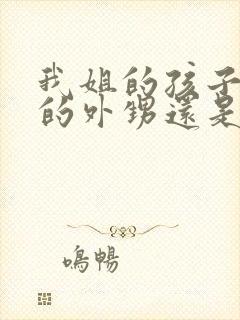 我姐的孩子
的外甥還是
鳴暢